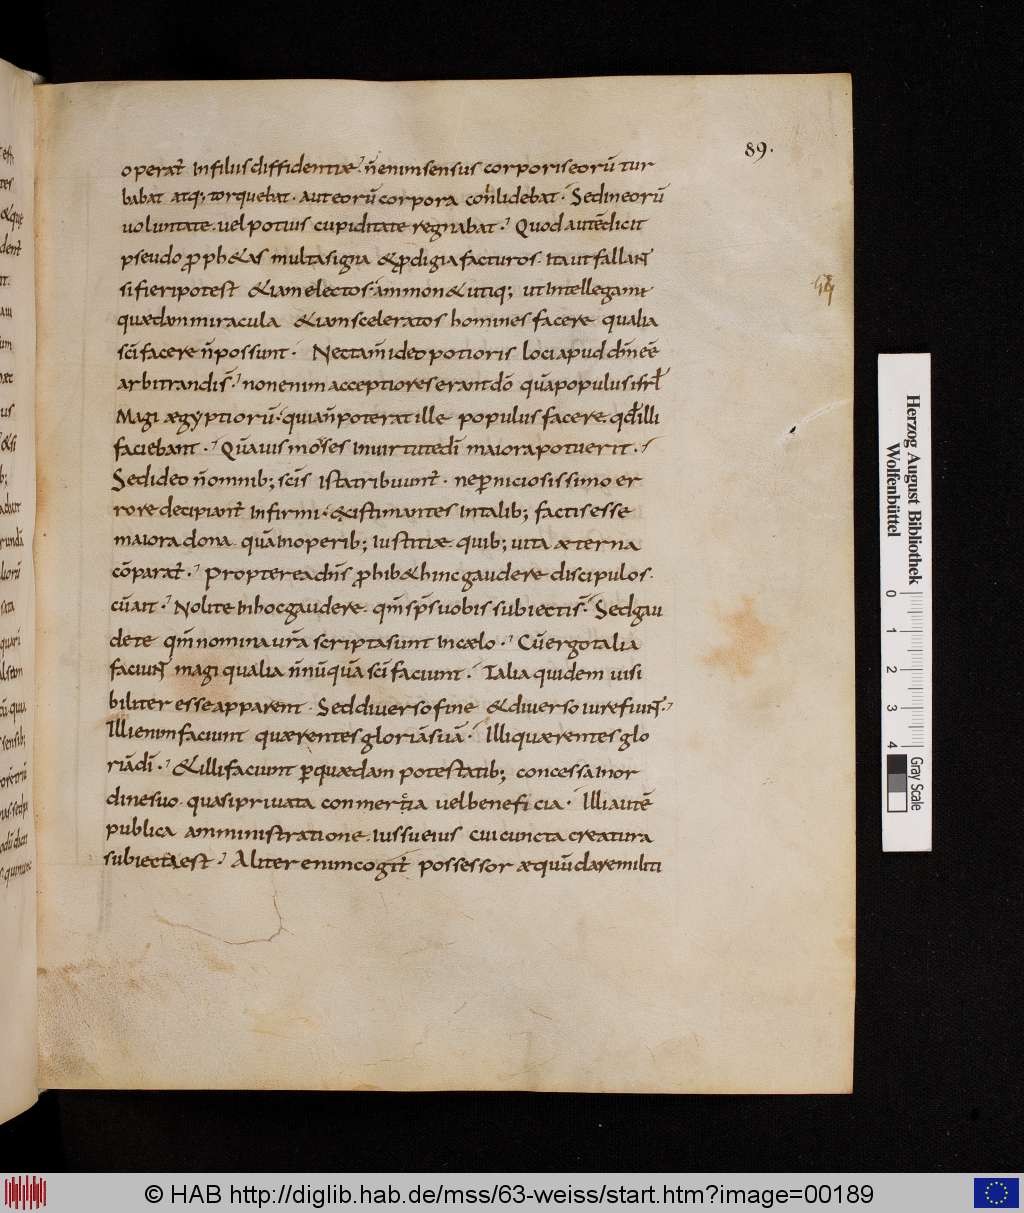 89.
operat̄ infilius diffidentiae. n̄ enim sensus corporis eorū tur
babat atq; torquebat. aut eorū corpora conlidebat. Sed in eorū
uoluntate. uel potius cupiditate regnabat. Quod autē dicit
pseudo ꝓph&as multa signa &ꝓdigia facturos. ita ut fallant
si fieri potest &iam electos. ammon& utiq; ut intellegamus
quædam miracula &iam sceleratos homines facere qualia
sc̄i facere n̄ possunt. Nec tam̄ ideo potioris loci apud dm̄ eē
arbitrandi s̄. non enim acceptiores erant dō quā populus isrl̄
Magi ægyptiorū. quia n̄ poterat ille populus facere. qd̄ illi
faciebant. Quāuis moses in uirtute dī maiora potuerit.
Sed ideo n̄ omnib; scīs ista tribuunt̄. ne ꝑniciosissimo er
rore decipiant̄ infirmi. &cistimantes in talib; factis esse
maiora dona. quā in operib; iustitiæ quib; uita æterna
cōparat̄. Propterea dn̄s ꝓhib& hinc gaudere discipulos.
cū ait. Nolite in hoc gaudere. qm̄ sps̄ uobis subiecti s̄. Sed gau
dete qm̄ nomina ur̄a scripta sunt in cælo. Cū ergo talia
faciunt magi qualia n̄nūquā sc̄i faciunt. Talia quidem uisi
biliter esse apparent. Sed diuerso fine &diuerso iure fiunt.
Illi enim faciunt quærentes gloriā suā. Illi quærentes glo
riā dī. &illi faciunt ꝑ quædam potestatib; concessa in or
dine suo. quasi priuata conmertia uel beneficia. Illi autē
publica amministratione. iussu eius cui cuncta creatura
subiecta est. Aliter enim cogit̄ possessor æquū dare militi
Herzog August Bibliothek
Wolfenbüttel
0 1 2 3 4
Gray Scale
© HAB http://diglib.hab.de/mss/63-weiss/start.htm?image=00189